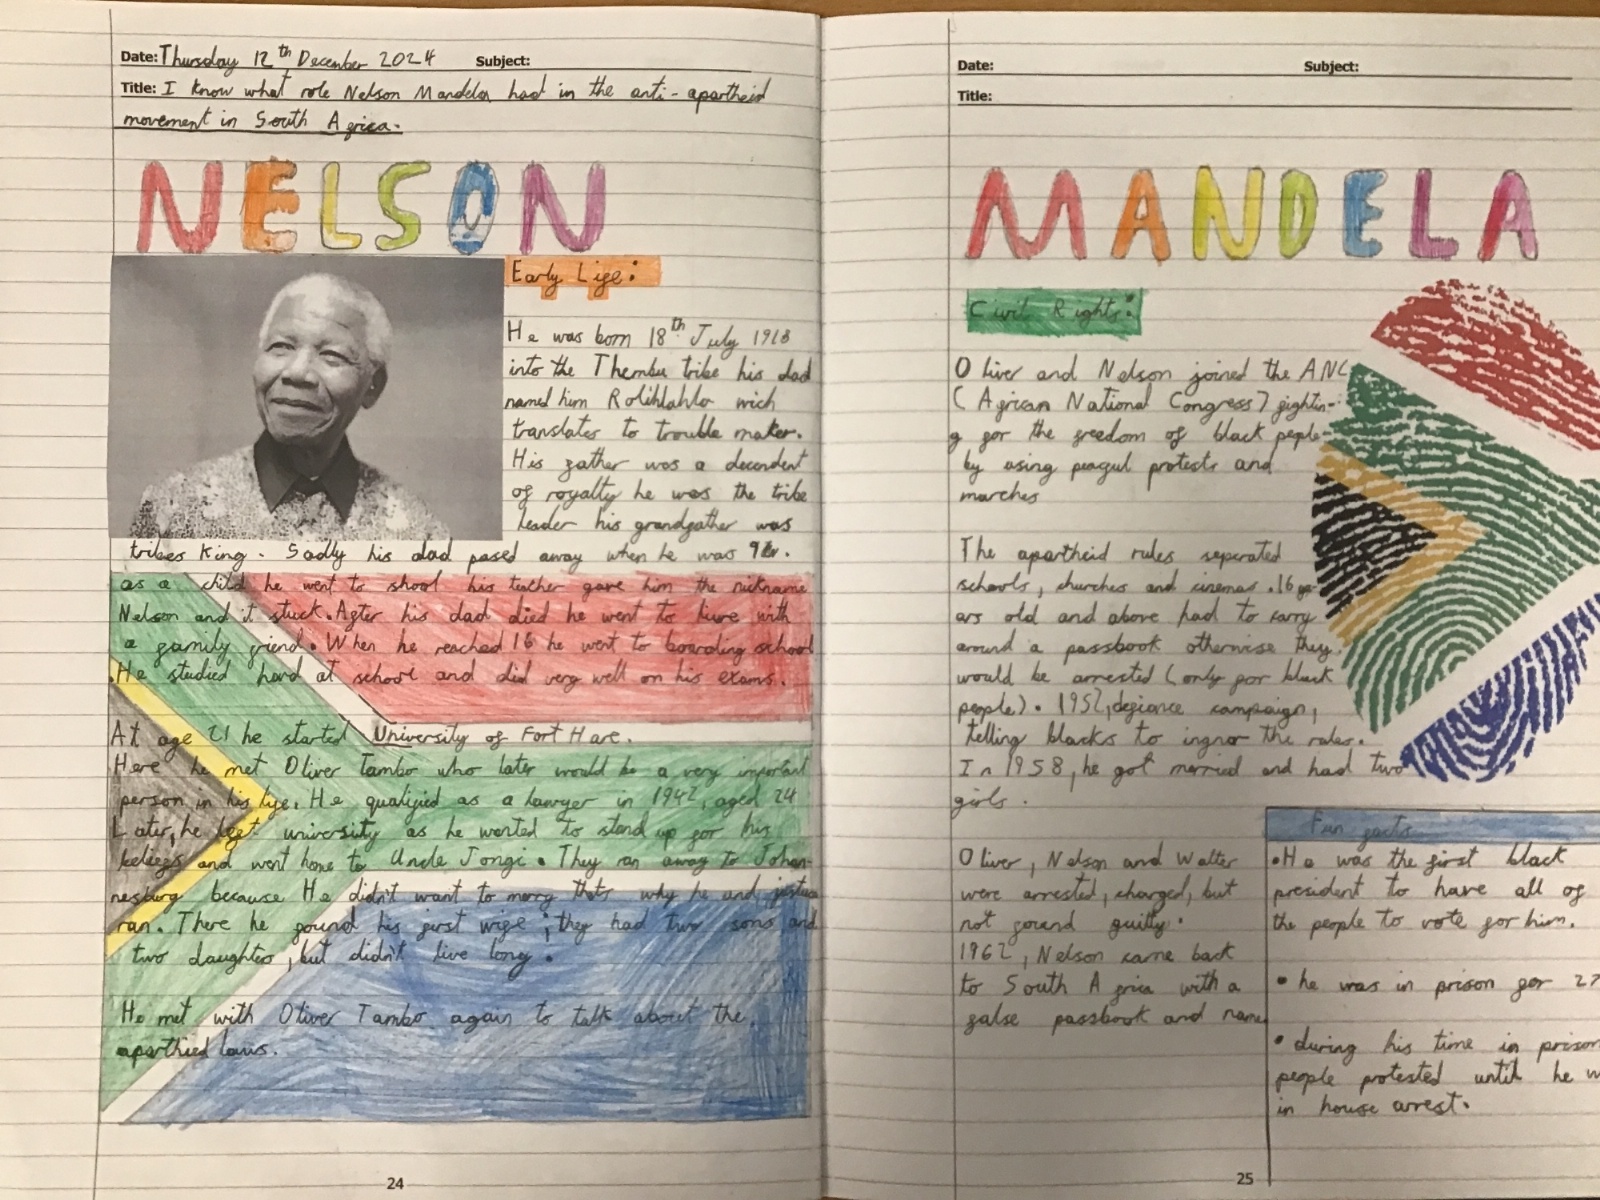 Date: Thursday 12th December 2024 Subject:
Title: I know what role Nelson Mandela had in the anti-apartheid
movement in South Africa.
NELSON
Early Life:
He was born 18th July 1918
into the Thembu tribe his dad
named him Rolihlahla wich
translates to trouble maker.
His father was a decendent
of royalty he was the tribe
leader his grandfather was
tribes King. Sadly his dad pased away when he was
as a child he went to shool his teacher gave him the nickname
Nelson and it stuck. After his dad died he went to live with
a family friend. When he reached 16 he went to boarding school
. He studied hard at school and did very well on his exams.
At age 21 he started University of Fort Hare.
Here he met Oliver Tambo who later would be a very important
person in his life. He qualified as a lawyer in 1942, aged 24
Later, he left university as he wanted to stand up for his
and went home to Uncle Jongi. They ran away to Johan-
nesburg because He didn't want to marry thats why he and justice
ran. There he found his first wife; they had two sons and
two daughters, but didn't live long.
He met with Oliver Tambo again to talk about the
aparthied laws.
24
Date: Subject:
Title:
MANDELA
Civil Rights:
Oliver and Nelson joined the ANC
(African National Congress) fightin-
g for the freedom of black peple
by using peaful protests and
marches
The apartheid rules seperated
schools, churches and cinemas. 16 ye-
ars old and above had to carry
around a passbook otherwise they
would be arrested (only for black
people). 1952, defiance campaign,
telling blacks to ingnor the rules.
In 1958, he got married and had two
girls.
Oliver, Nelson and Walter
were arrested, charged, but
not found guilty.
1962, Nelson came back
to South Africa with a
false passbook and name
Fun facts
• He was the first black
president to have all of
the people to vote for him.
• he was in prison for 27
• during his time in prison
people protested until he w
in house arrest.
25